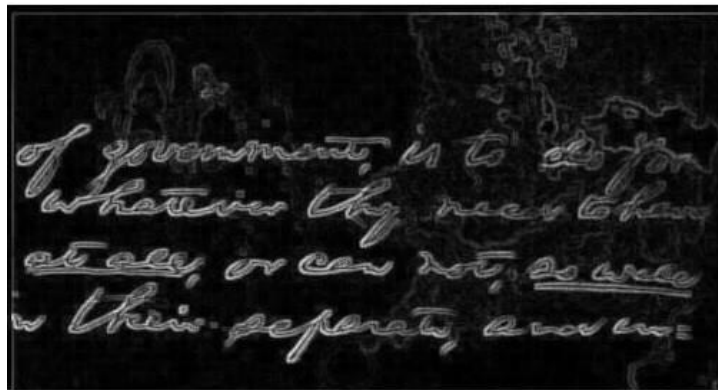 of government, is to do for
whatever they need to have
at all, or can not, so well
their seperate, and in=